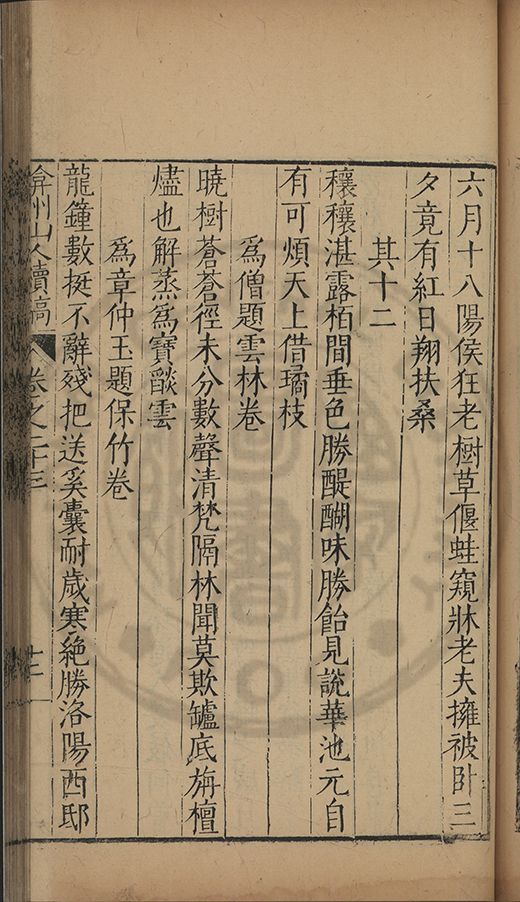 六月十八陽侯狂老樹草偃蛙窺牀老夫擁被卧三
夕竟有紅日翔扶桑
其十二
穰穰湛露栢間垂色勝醍醐味勝飴見說華池元自
有可煩天上借璚枝
爲僧題雲林卷
曉樹蒼蒼徑未分數聲清梵隔林聞莫欺罏底旃檀
燼也解蒸爲寳𦦨雲
爲章仲玉題保竹卷
龍鐘數挺不辭殘把送奚囊耐歲寒絶勝洛陽西邸
弇州山人續稿 卷之二十三 十二